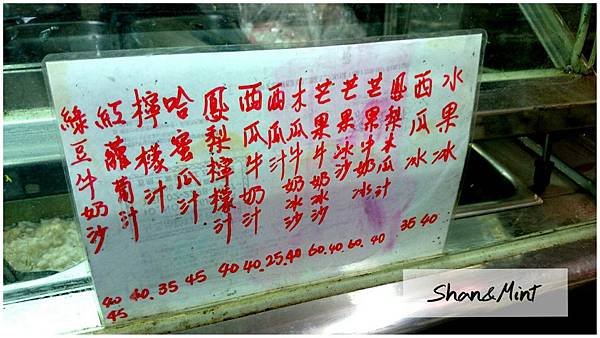 水果冰 40
西瓜冰 35
鳳梨木瓜汁 40
芒果牛奶冰 60
芒果冰沙 40
芒果牛奶冰沙 60
木瓜牛奶冰沙 40
西瓜汁 25
西瓜牛奶汁 40
鳳梨檸檬汁 40
哈蜜瓜汁 45
檸檬汁 35
紅蘿葡汁 40
綠豆牛奶沙 40
45
Shan&Mint